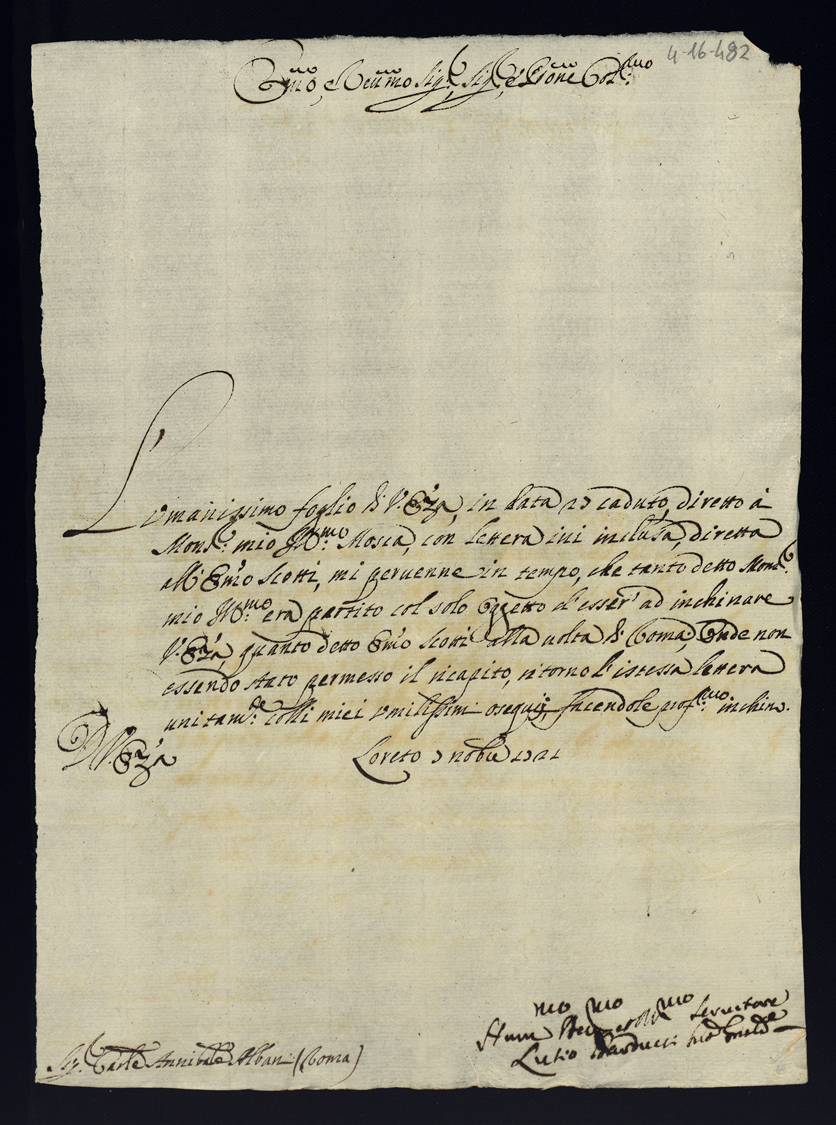 4-16-482
Em.mo, e Reu.mo Sig.r, Sig.r, e Prone Col.mo
L'vmanissimo foglio di V. Em.za, in data 27 caduto, diretto à
Mons.r mio Ill.mo Mosca, con lettera iui inclusa, diretta
all'Em.o Scotti, mi peruenne in tempo, che tanto detto Mons.r
mio Ill.mo era partito col solo oggetto d'esser' ad inchinare
V. Em.za, quanto detto Em.o Scotti alla uolta di Roma; Onde non
essendo stato permesso il ricapito, ritorno l'istessa lettera
unitam.te colli miei vmilissimi osequij, facendole prof.mo inchino.
D. V. Em.za
Loreto 3 nobre 1721
Hum.mo Deu.mo Seruitore
Lutio
Sig.r Card.le Annibale Albani (Roma)